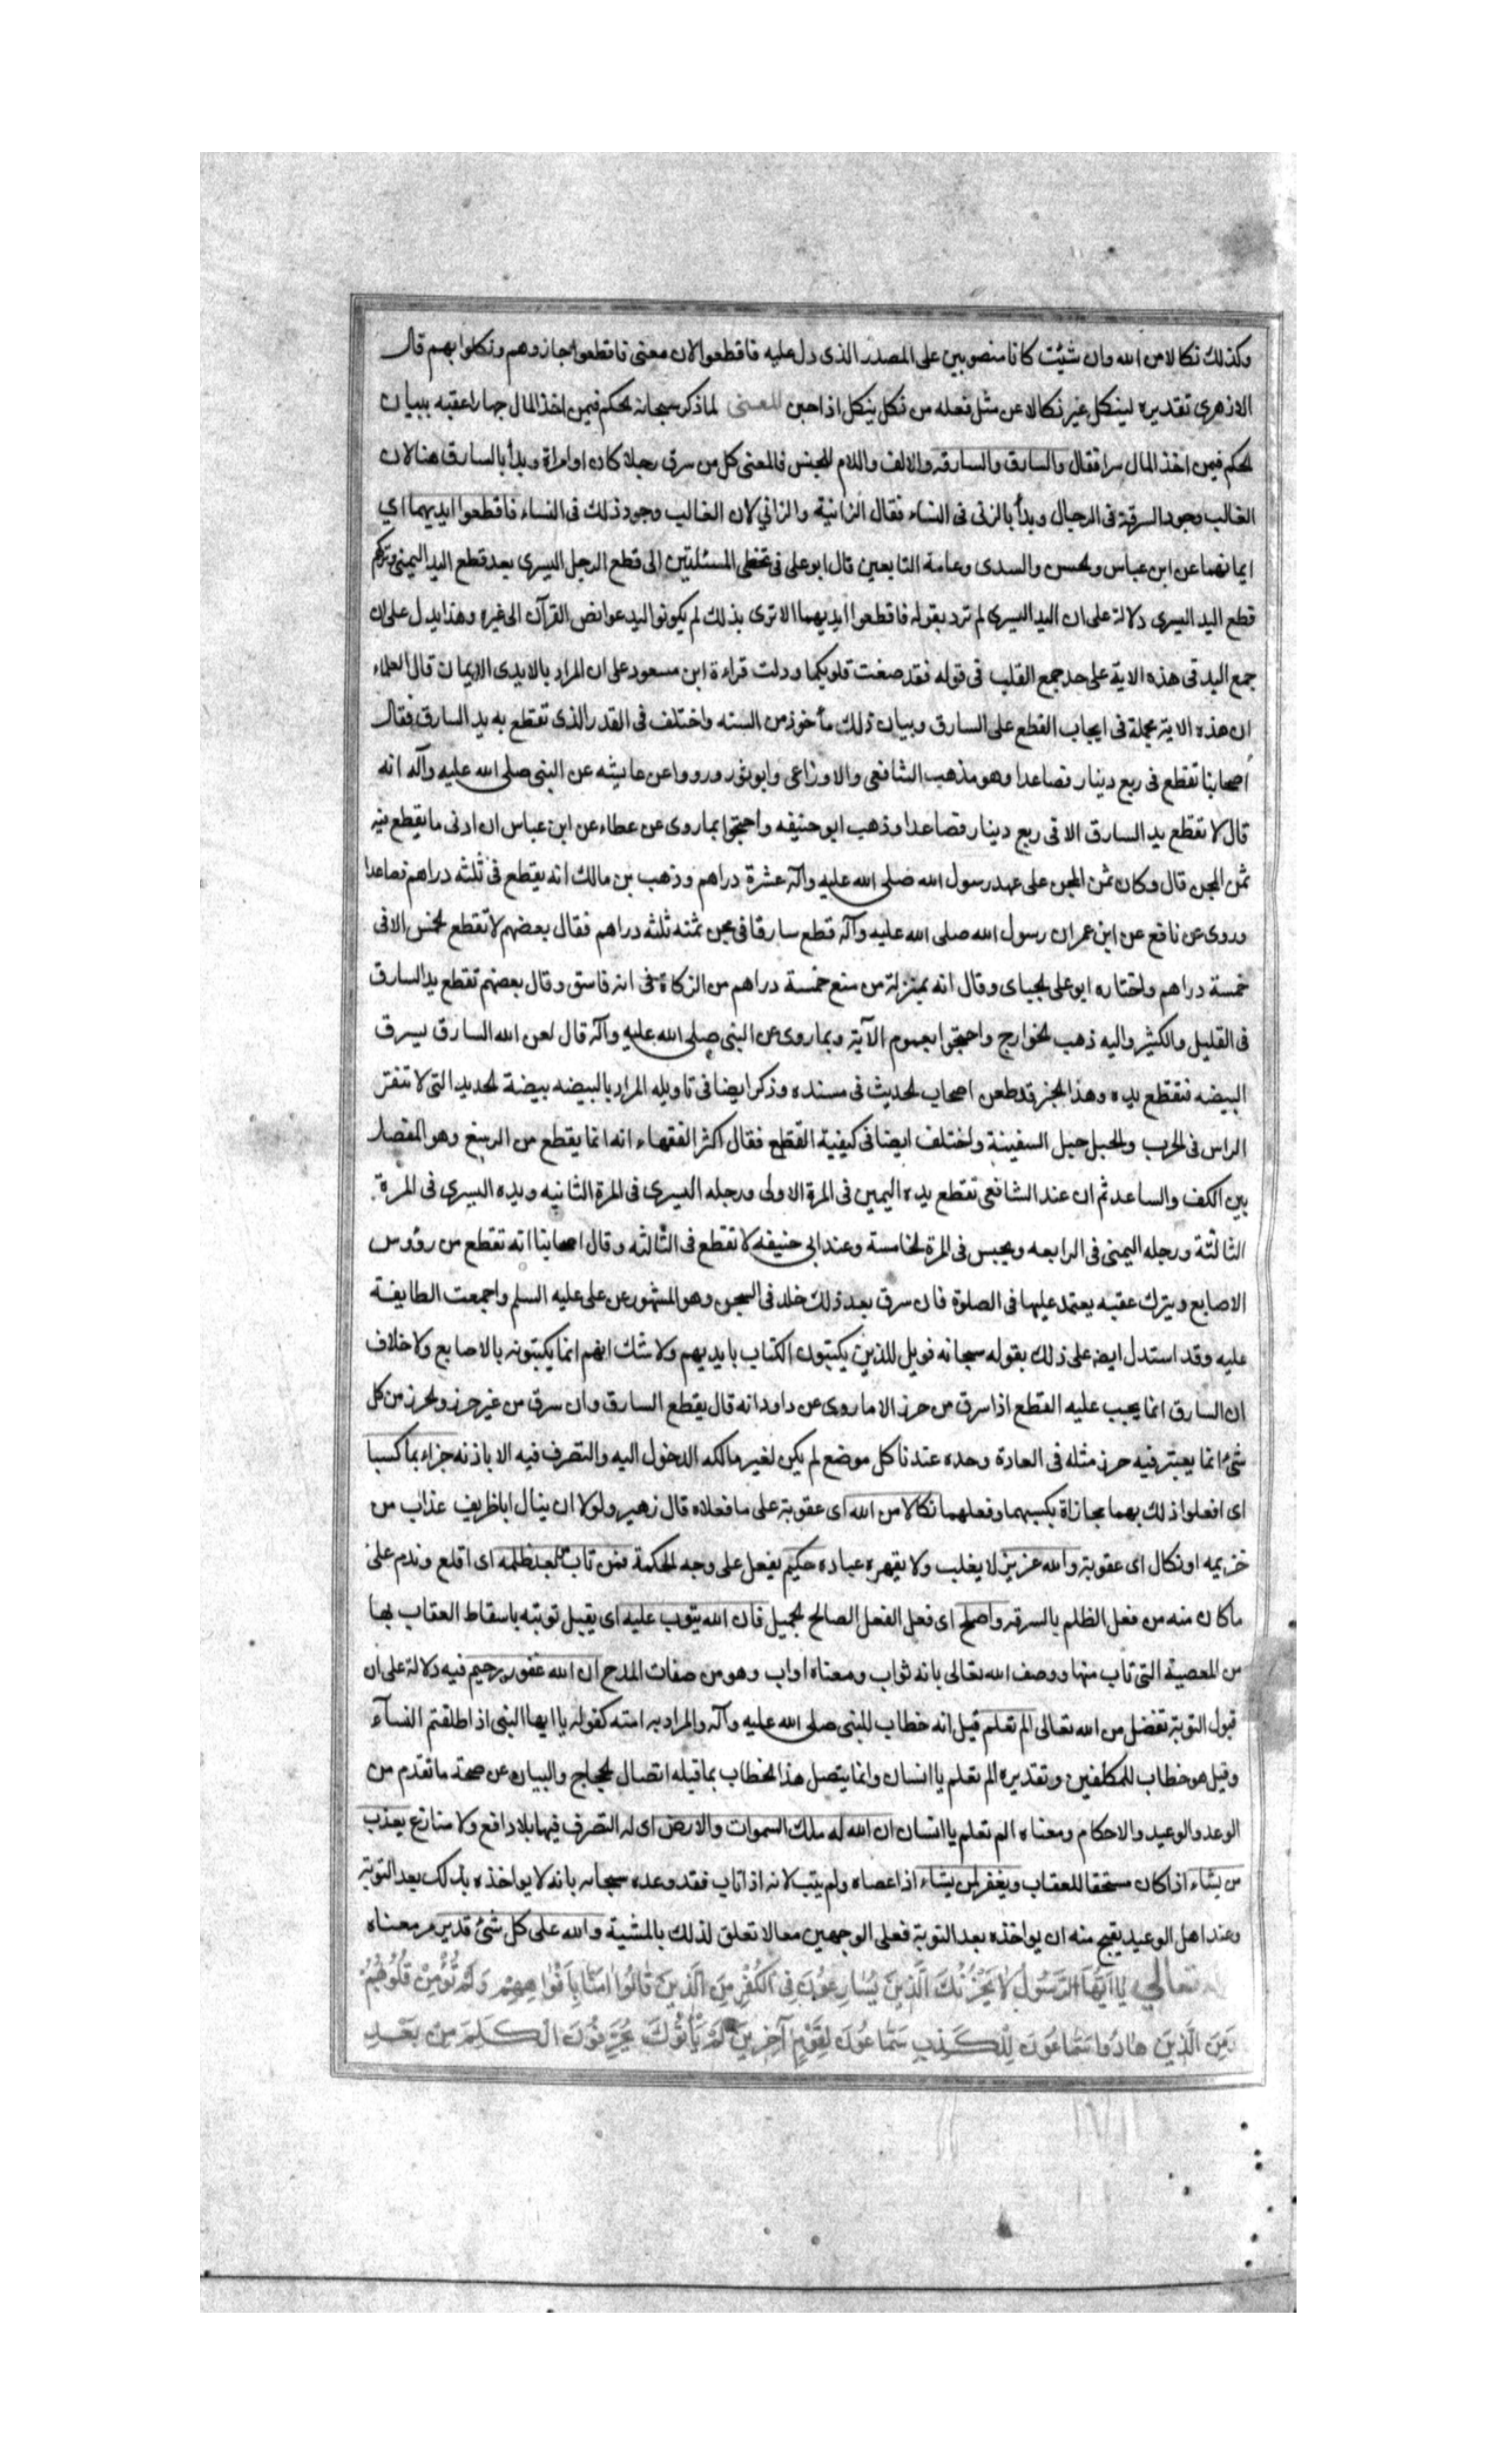 وكذلك نكالا من الله وان شيئت كانا منصوبين على المصدر الذى دل عليه فاقطعوا لان معنى فاقطعوا جازوهم ونكلوا بهم قال
الازهرى تقديره لينكل غير نكالا عن مثل فعله من نكل ينكل اذا جبن المعنى لما ذكر سبحانه الحكم فيمن اخذ المال جهارا عقبه ببيان
الحكم فيمن اخذ المال سرا فقال والسارق والسارقة والالف واللام للجنس فالمعنى كل من سرق رجلا كان او امراة وبدأ بالسارق هنا لان
الغالب وجود السرقة فى الرجال وبدأ بالزنى فى النساء فقال الزانية والزاني لان الغالب وجود ذلك فى النساء فاقطعوا ايديهما اي
ايمانهما عن ابن عباس والحسن والسدى وعامة التابعين قال ابو على فى تخطى المسئلتين الى قطع الرجل اليسرى بعد قطع اليد اليمنى وتركهم
قطع اليد اليسرى دلالة على ان اليد اليسرى لم ترد بقوله فاقطعوا ايديهما الا ترى بذلك لم يكونوا ليدعوا نص القرآن الى غيره وهذا يدل على ان
جمع اليد فى هذه الاية على حد جمع القلب فى قوله فقد صغت قلوبكما ودلت قراءة ابن مسعود على ان المراد بالايدى الايمان قال العلماء
ان هذه الاية مجملة فى ايجاب القطع على السارق وبيان ذلك مأخوذ من السنه واختلف فى القدر الذى تقطع به يد السارق فقال
أصحابنا تقطع فى ربع دينار فصاعدا وهو مذهب الشافعى والاوزاعى وابو ثور ورووا عن عايشه عن النبى صلى الله عليه وآله انه
قال لا تقطع يد السارق الا فى ربع دينار فصاعدا وذهب ابو حنيفه واحتجوا بما روى عن عطاء عن ابن عباس ان ادنى ما يقطع فيه
ثمن المجن قال وكان ثمن المجن على عهد رسول الله صلى الله عليه وآله عشرة دراهم وذهب بن مالك انه يقطع فى ثلثه دراهم فصاعدا
وروى عن نافع عن ابن عمر ان رسول الله صلى الله عليه وآله قطع سارقا فى مجن ثمنه ثلثه دراهم فقال بعضهم لا تقطع الخمس الا فى
خمسة دراهم واختاره ابو على الجباى وقال انه بمنزلة من منع خمسة دراهم من الزكاة فى انه فاسق وقال بعضهم تقطع يد السارق
فى القليل والكثير واليه ذهب الخوارج واحتجوا بعموم الآية وبما روى عن النبى صلى الله عليه وآله قال لعن الله السارق يسرق
البيضه فتقطع يده وهذا الخبر قد طعن اصحاب الحديث فى مسنده وذكر ايضا فى تاويله المراد بالبيضه بيضة الحديد التى لا تنفر
الراس فى الحرب والحبل حبل السفينة واختلف ايضا فى كيفية القطع فقال اكثر الفقهاء انه انما يقطع من الرسغ وهو المفصل
بين الكف والساعد ثم ان عند الشافعى تقطع يده اليمين فى المرة الاولى ورجله اليسرى فى المرة الثانيه ويده اليسرى فى المرة
الثالثة ورجله اليمنى فى الرابعه ويحبس فى المرة الخامسة وعند ابى حنيفه لا تقطع فى الثالثه وقال اصحابنا انه تقطع من رؤس
الاصابع ويترك عقبه يعتمد عليها فى الصلوة فان سرق بعد ذلك خلد فى السجن وهو المشهور عن على عليه السلم واجمعت الطايفة
عليه وقد استدل ايضه على ذلك بقوله سبحانه فويل للذين يكتبون الكتاب بايديهم ولا شك انهم انما يكتبونه بالاصابع ولا خلاف
ان السارق انما يجب عليه القطع اذا سرق من حرز الا ما روى عن داود انه قال يقطع السارق وان سرق من غير حرز والحرز من كل
شئ انما يعتبر فيه حرز مثله فى العادة وحده عندنا كل موضع لم يكن لغير مالكه الدخول اليه والتصرف فيه الا باذنه جزاء بما كسبا
اى افعلوا ذلك بهما مجازاة بكسبهما وفعلهما نكالا من الله اى عقوبة على ما فعلاه قال زهير ولولا ان ينال اباظريف عذاب من
خزيمه او نكال اى عقوبة والله عزيز لا يغلب ولا يقهره عباده حكيم يفعل على وجه الحكمة فمن تاب من بعد ظلمه اى اقلع وندم على
ما كان منه من فعل الظلم بالسرقه واصلح اى فعل الفعل الصالح الجميل فان الله يتوب عليه اى يقبل توبته باسقاط العقاب بها
من المعصية التى تاب منها ووصف الله تعالى بانه تواب ومعناه اواب وهو من صفات المدح ان الله غفور رحيم فيه دلالة على ان
قبول التوبة تفضل من الله تعالى الم تعلم قيل انه خطاب للنبى صلى الله عليه وآله والمراد به امته كقوله يا ايها النبى اذا طلقتم النسآء
وقيل هو خطاب للمكلفين وتقديره الم تعلم يا انسان وانما يتصل هذا الخطاب بما قبله اتصال الحجاج والبيان عن صحة ما تقدم من
الوعد والوعيد والاحكام ومعناه الم تعلم يا انسان ان الله له ملك السموات والارض اى له التصرف فيها بلا دافع ولا منازع يعذب
من يشاء اذا كان مستحقا للعقاب ويغفر لمن يشاء اذا عصاه ولم يتب لانه اذا تاب فقد وعده سبحانه بانه لا يواخذه بذلك بعد التوبة
وعند اهل الوعيد يقبح منه ان يواخذه بعد التوبة فعلى الوجهين معا لا تعلق لذلك بالمشية والله على كل شئ قدير مر معناه
تعالى يَا اَيُّهَا الرَّسُولُ لَا يَحْزُنْكَ الَّذِينَ يُسَارِعُونَ فِى الْكُفْرِ مِنَ الَّذِينَ قَالُوا امَنَّا بِاَفْوَاهِهِمْ وَلَمْ تُؤْمِنْ قُلُوبُهُمْ
وَمِنَ الَّذِينَ هَادُوا سَمَّاعُونَ لِلْكَذِبِ سَمَّاعُونَ لِقَوْمٍ آخَرِينَ لَمْ يَأْتُوكَ يُحَرِّفُونَ الْكَلِمَ مِنْ بَعْدِ